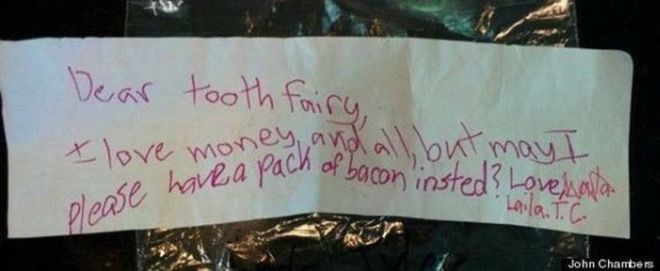 Dear tooth fairy,
I love money, and all, but may I
please have a pack of bacon insted? Love, Laila
Laila. T.C.
John Chambers